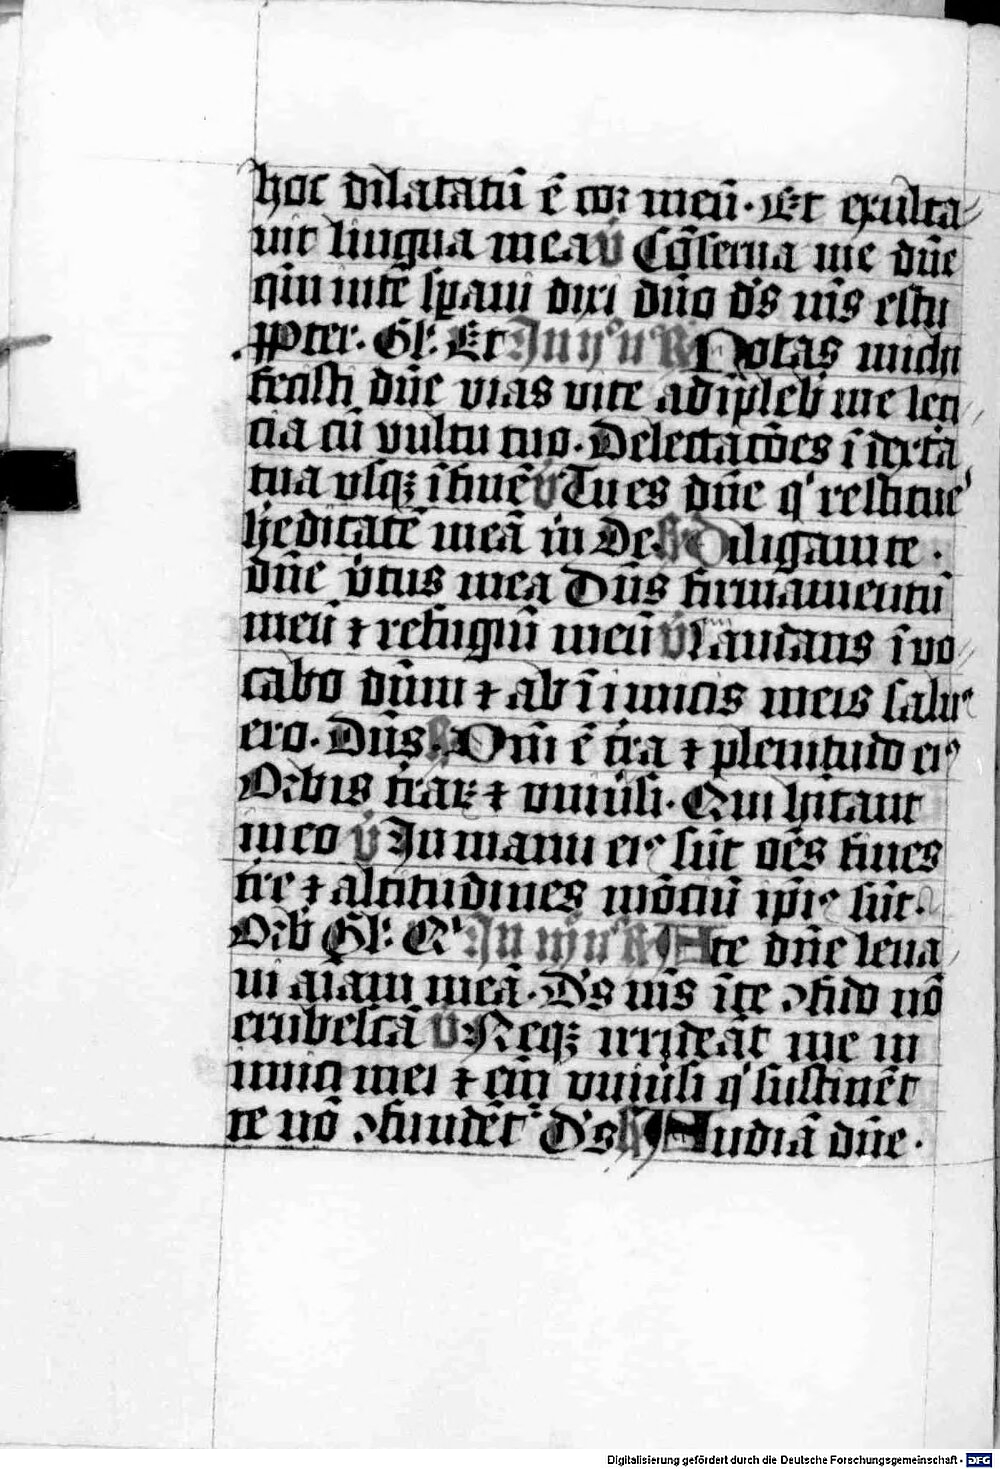 hoc dilatatū ē cor meū. Et exulta⸗
uit lingua mea v̄ Cōserua me dn̄e
qm̄ in te sꝑaui dixi dn̄o ds̄ ms̄ es tu
ꝓpter. Gl̄. Et In ijº nº R̄ Notas michi
fecisti dn̄e vias vite adīplebˀ me leti⸗
cia cū vultu tuo. Delectatōes ī dextᵃ
tua vsqꝫ ī finē v̄ Tu es dn̄e qˡ restitueˢ
hˀeditatē meā m̄ De R̄ Diligam te .
dn̄e v̓tus mea Dn̄s firmamentū
meū ⁊ refugiū meū v̄ Laudans īuo⸗
cabo dn̄m ⁊ ab īimicis meis saluˢ
ero. Dn̄s R̄ Dn̄i ē tr̄a ⁊ plenitudo eiꝰ
Orbis tr̄arꝝ ⁊ vniūsi. Qui hītant
in eo v̄ In manu eiꝰ sūt oēs fines
tr̄e ⁊ altitudines mōtiū ip̄iꝰ sūt.
Orb̄ Gl̄. Qˡ In iijº nº R̄ Ad te dn̄e leua⸗
ui aīam meā. Ds̄ ms̄ ī te ꝯfido nō
erubescā v̄ Neqꝫ irrideāt me in
imici mei ⁊ em̄ vniūsi qˡ sustinēt
te nō ꝯfundēt᷑ Ds̄ R̄ Audiā dn̄e .
Digitalisierung gefördert durch die Deutsche Forschungsgemeinschaft - DFG